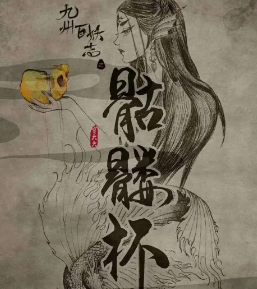 九州
百妖
志
之
骷
髅
杯